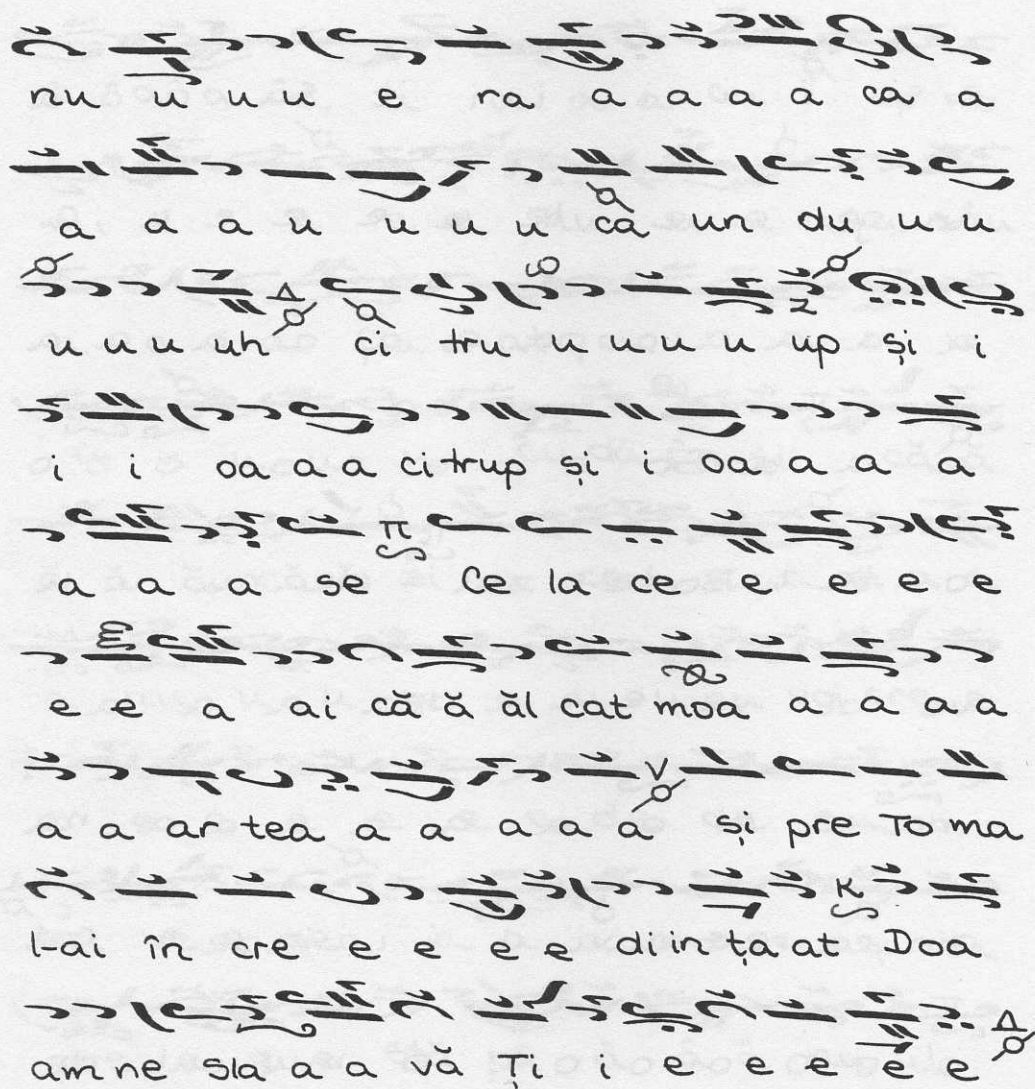 nu u u u e ra a a a a că a
a a a u u u u ca un du u u
u u u uh ci tru u u u u up și i
i i oa a a ci trup și i oa a a a
a a a se Ce la ce e e e e e
e e a ai că ă ăl cat moa a a a a
a a ar tea a a a a a și pre To ma
l-ai în cre e e e e di in ța at Doa
am ne sla a a vă Ți i e e e e e